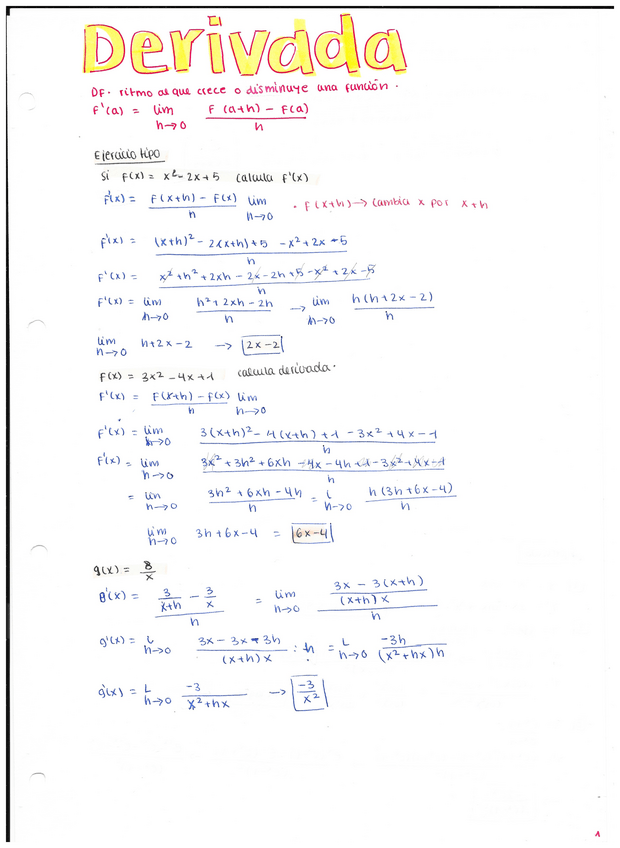 Derivada
DF. ritmo al que crece o disminuye una función.
F'(a) = lim F (a+h) - F(a)
h→0 h
Ejercicio tipo
Si F(x) = x² - 2x + 5 calcula F'(x)
F'(x) = F(x+h) - F(x) lim
h h→0
• F(x+h) → cambia x por x+h
F'(x) = (x+h)² - 2(x+h) + 5 - x² + 2x - 5
h
F'(x) = x² + h² + 2xh - 2x - 2h + 5 - x² + 2x - 5
h
F'(x) = lim h² + 2xh - 2h → lim h(h+2x-2)
h→0 h h→0 h
lim h+2x-2 → 2x-2
h→0
F(x) = 3x² - 4x + 1 calcula derivada.
F'(x) = F(x+h) - F(x) lim
h h→0
F'(x) = lim 3(x+h)² - 4(x+h) + 1 - 3x² + 4x - 1
h→0 h
F'(x) = lim 3x² + 3h² + 6xh - 4x - 4h + 1 - 3x² + 4x - 1
h→0 h
= lim 3h² + 6xh - 4h = L h(3h+6x-4)
h→0 h h→0 h
lim 3h + 6x - 4 = 6x-4
h→0
g(x) = 8
x
g'(x) = 3 - 3 = lim 3x - 3(x+h)
x+h x h→0 (x+h)x
h h
g'(x) = L 3x - 3x - 3h : h = L -3h
h→0 (x+h)x h→0 (x²+hx)h
g'(x) = L -3 → -3
h→0 x²+hx x²
1